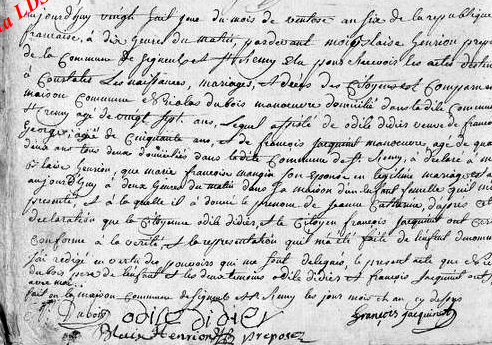 LDS
aujourd'huy vingt huit jour du mois de ventose an six de la republique
francaise, à dix heures du matin, pardevant moi Blaise henrion
de la Commune de signeul et St remy elu pour recevoir les actes destinés
à Constater les naissances, mariages, et décès des Citoyens est Comparu en
maison Commune Nicolas dubois manoeuvre domicilié dans la dite Commune
St remy agé de vingt sept ans, lequel assisté de odile didier veuve de francois
George, agée de Cinquante ans, et de francois jacquinot manoeuvre agé de
deux ans tous deux domiciliés dans la dite Commune de St remy, à déclaré à moi
Blaise henrion, que marie francoise mangin son epouse en legitime mariage est
aujourd'huy à deux heures du matin dans sa maison d'un enfant femelle qu'il m'a
presenté, et à la quelle il à donné le prenome de jeanne Catherine, d'après cette
declaration que la Citoyenne odile didier, et le Citoyen françois jacquinot ont
conforme à la verité, et la representation qui m'a été faite de l'enfant denommé
j'ai redigé en vertu des pouvoirs qui me sont delegués, le present acte que
dubois pere de l'enfant et les deux temoins odile didier et francois jacquinot ont
avec moi
fait en la maison Commune de signeul et St remy les jour mois et an
Dubois odile didier françois jacquinot
Blaise Henrion prepose